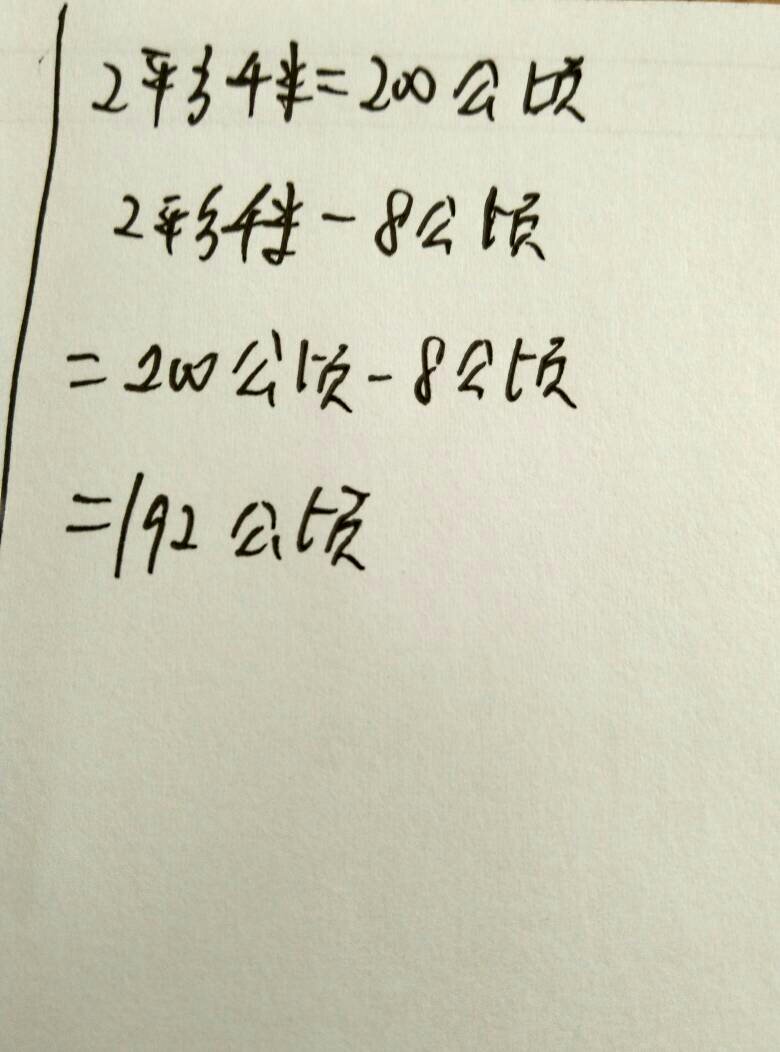 2平方千米=200公顷
2平方千米-8公顷
=200公顷-8公顷
=192公顷